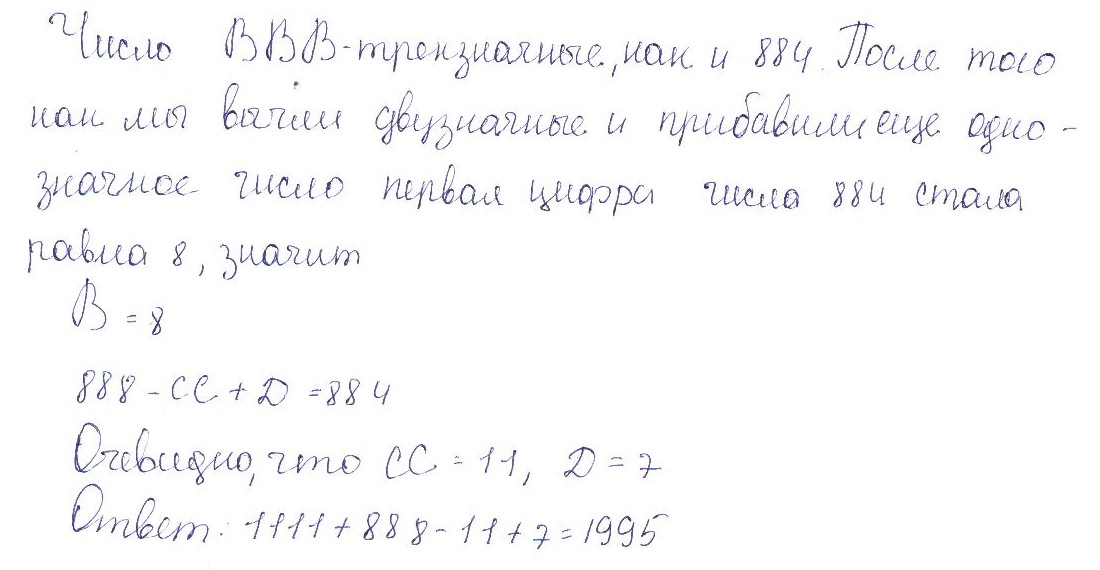 Число BBB-трехзначные, как и 884. После того
как мы вычли двузначные и прибавили еще одно-
значное число первая цифра числа 884 стала
равна 8, значит
B = 8
888 - CC + D = 884
Очевидно, что CC = 11, D = 7
Ответ: 1111 + 888 - 11 + 7 = 1995